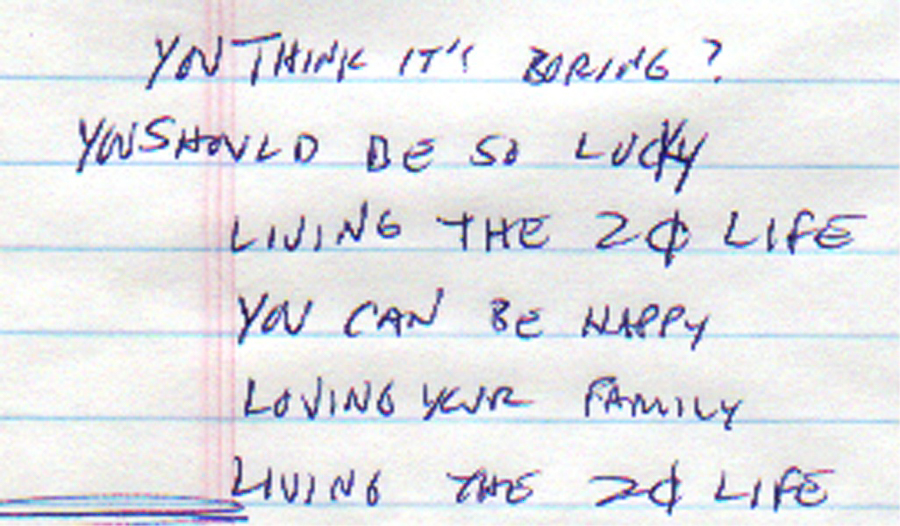 YOU THINK IT'S BORING?
YOU SHOULD BE SO LUCKY
LIVING THE 2¢ LIFE
YOU CAN BE HAPPY
LOVING YOUR FAMILY
LIVING THE 2¢ LIFE